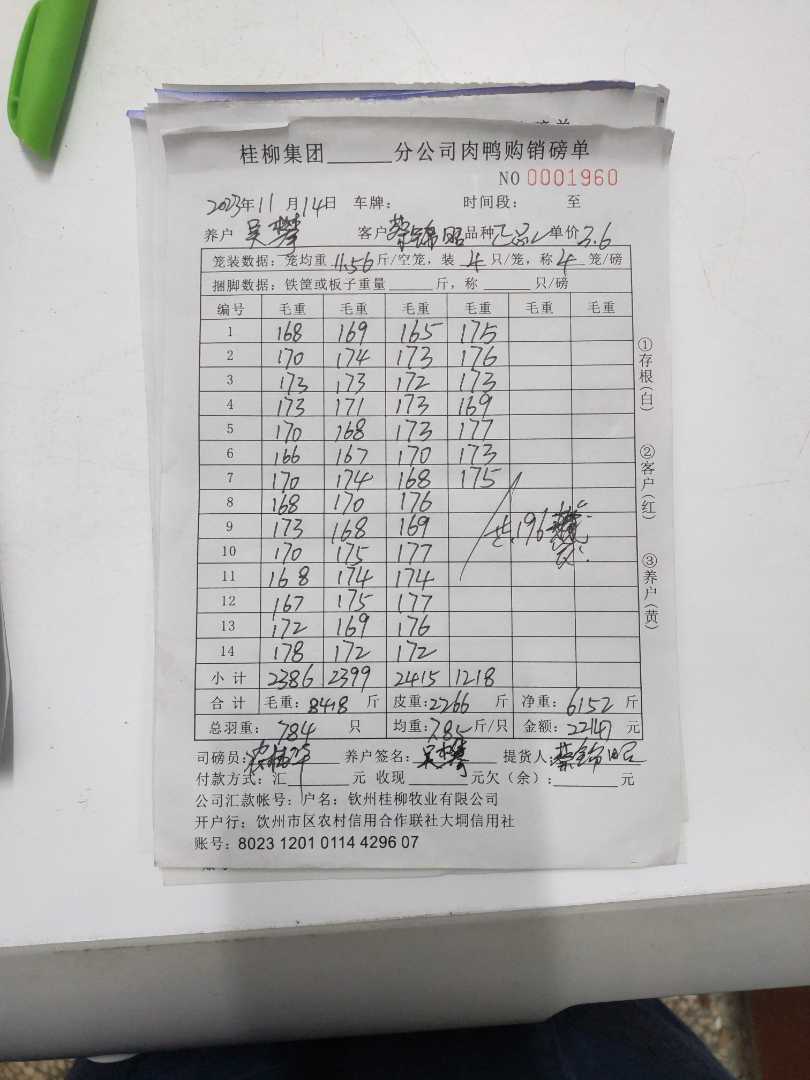 桂柳集团______分公司肉鸭购销磅单
NO 0001960
2023年11月14日 车牌: 时间段: 至
养户 吴攀 客户 蔡锦昭 品种 单价3.6
笼装数据: 笼均重11.56斤/空笼, 装4只/笼, 称4笼/磅
捆脚数据: 铁筐或板子重量______斤, 称______只/磅
编号 毛重 毛重 毛重 毛重 毛重 毛重
1 168 169 165 175
2 170 174 173 176
3 173 173 172 173
4 173 171 173 169
5 170 168 173 177
6 166 167 170 173
7 170 174 168 175
8 168 170 176
9 173 168 169
共196
10 170 175 177
11 168 174 174
12 167 175 177
13 172 169 176
14 178 172 172
小计 2386 2399 2415 1218
合计 毛重:8418斤 皮重:2266斤 净重:6152斤
总羽重:784只 均重:7.85斤/只 金额:22147元
司磅员: 养户签名:吴攀 提货人:蔡锦昭
付款方式:汇______元 收现______元欠(余):______元
公司汇款帐号: 户名: 钦州桂柳牧业有限公司
开户行: 钦州市区农村信用合作联社大垌信用社
账号: 8023 1201 0114 4296 07
①存根(白)
②客户(红)
③养户(黄)